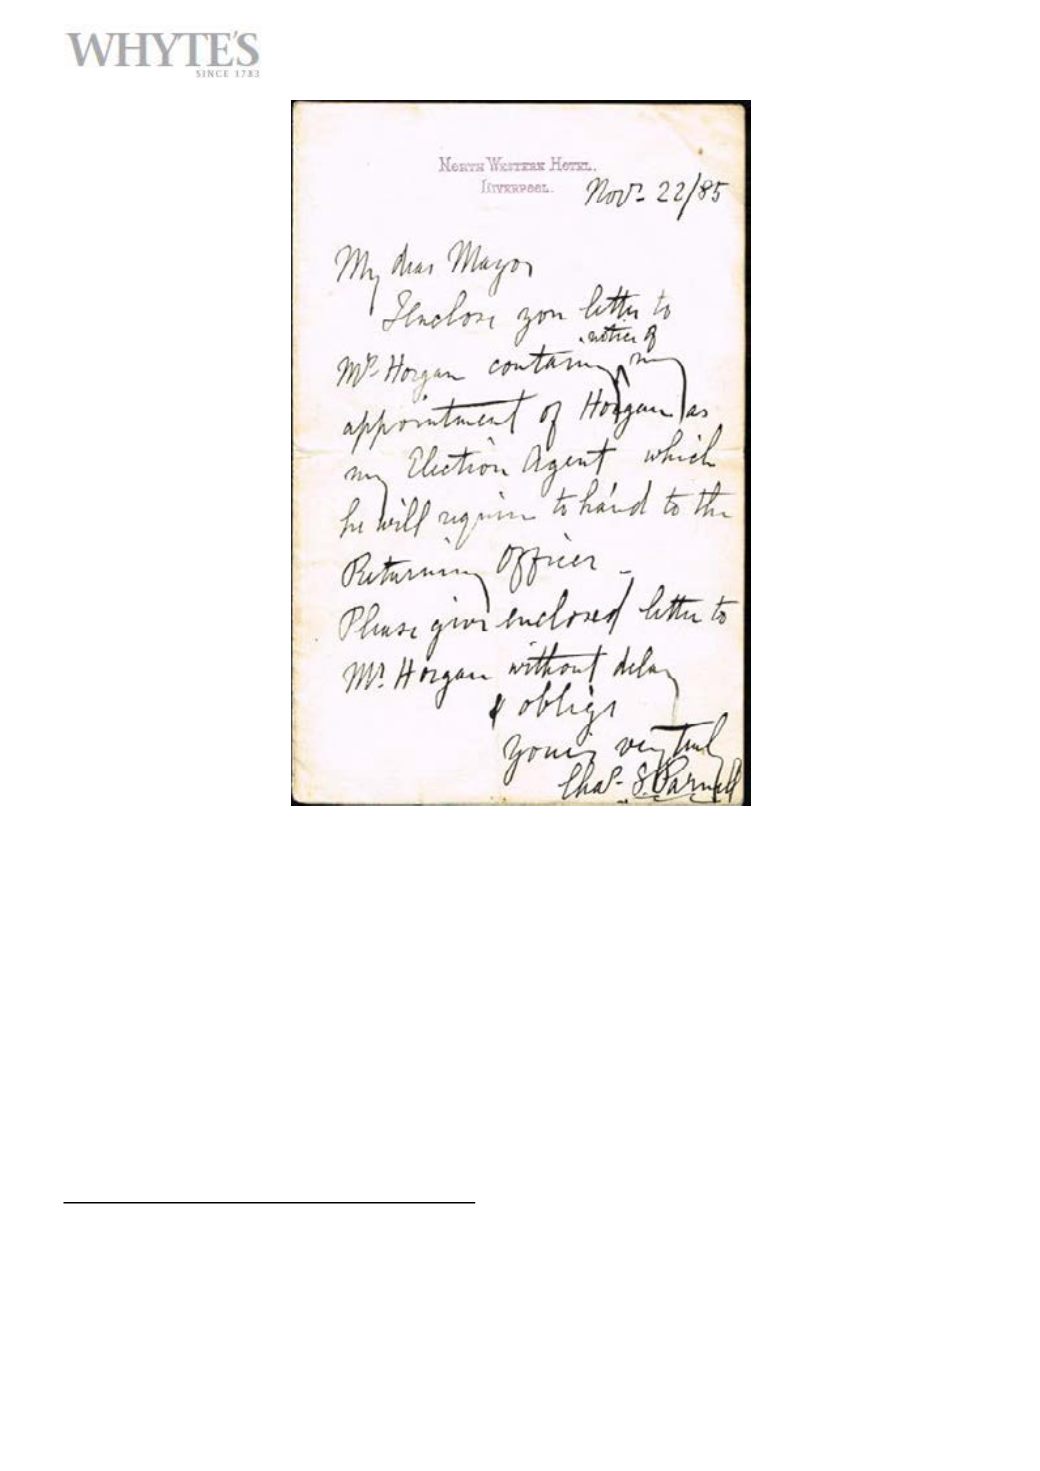 WHYTE'S
SINCE 1783
NORTH WESTERN HOTEL.
LIVERPOOL.
Novr. 22/85
My dear Mayor
I enclose you letter to
notice of
Mr. Horgan containing my
appointment of Horgan as
my Election Agent which
he will require to hand to the
Returning Officer –
Please give enclosed letter to
Mr. Horgan without delay
& oblige
Yours very truly
Chas. S. Parnell